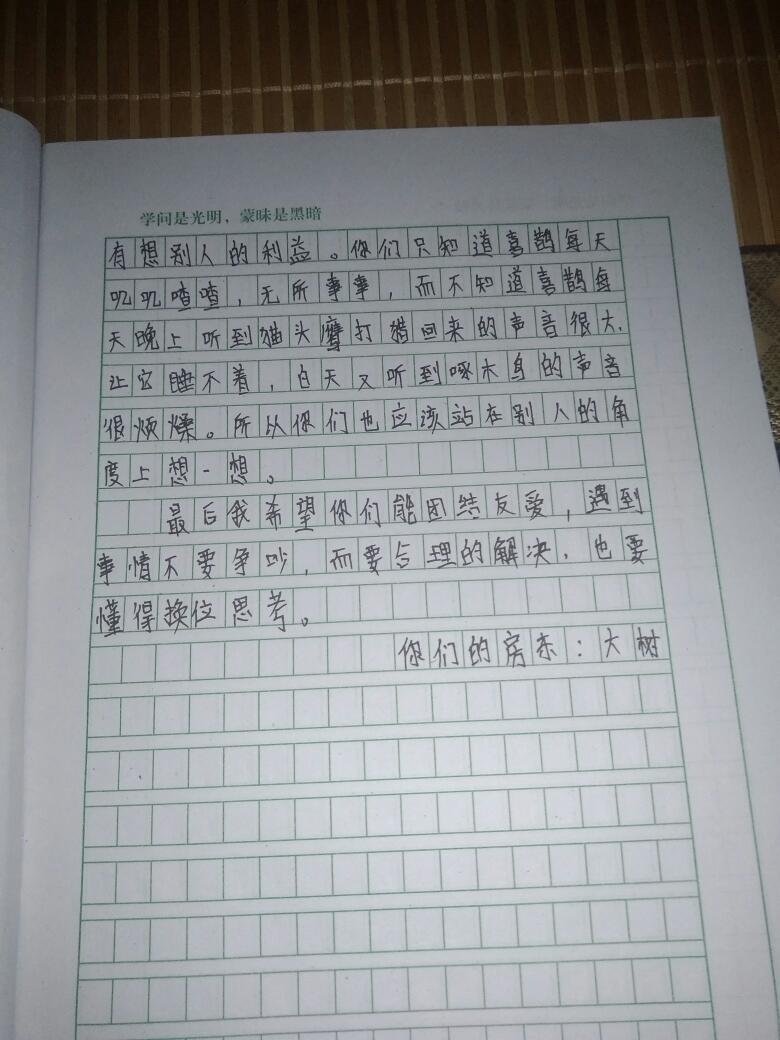 学问是光明，蒙昧是黑暗
有想别人的利益。你们只知道喜鹊每天
叽叽喳喳，无所事事，而不知道喜鹊每
天晚上听到猫头鹰打猎回来的声音很大，
让它睡不着，白天又听到啄木鸟的声音
很烦燥。所以你们也应该站在别人的角
度上想一想。
最后我希望你们能团结友爱，遇到
事情不要争吵，而要合理的解决，也要
懂得换位思考。
你们的房东：大树